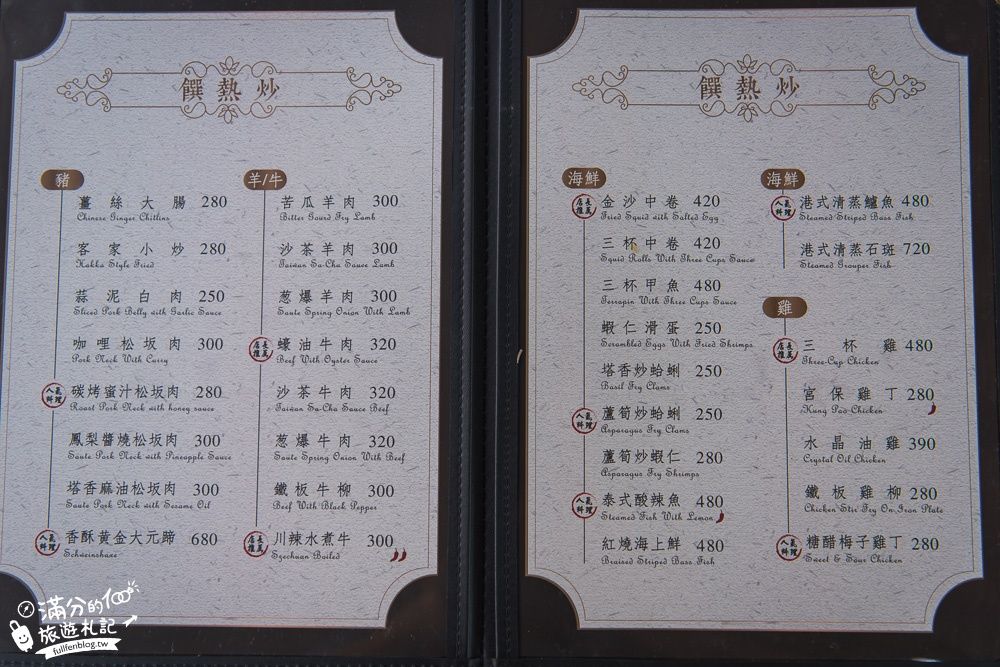 饌熱炒
豬
薑絲大腸 280
Chinese Ginger Chitlins
客家小炒 280
Hakka Style Fried
蒜泥白肉 250
Sliced Pork Belly with Garlic Sauce
咖哩松坂肉 300
Pork Neck With Curry
人氣料理
碳烤蜜汁松坂肉 280
Roast Pork Neck with honey sauce
鳳梨醬燒松坂肉 300
Saute Pork Neck with Pineapple Sauce
塔香麻油松坂肉 300
Saute Pork Neck with Sesame Oil
人氣料理
香酥黃金大元蹄 680
Schweinshaxe
羊/牛
苦瓜羊肉 300
Bitter Gourd Fry Lamb
沙茶羊肉 300
Taiwan Sa-Cha Sauce Lamb
葱爆羊肉 300
Saute Spring Onion With Lamb
店長推薦
蠔油牛肉 320
Beef With Oyster Sauce
沙茶牛肉 320
Taiwan Sa-Cha Sauce Beef
葱爆牛肉 320
Saute Spring Onion With Beef
鐵板牛柳 300
Beef With Black Pepper
店長推薦
川辣水煮牛 300
Szechuan Boiled
饌熱炒
海鮮
店長推薦
金沙中卷 420
Fried Squid with Salted Egg
三杯中卷 420
Squid Rolls With Three Cups Sauce
三杯甲魚 480
Terrapin With Three Cups Sauce
蝦仁滑蛋 250
Scrambled Eggs With Fried Shrimps
塔香炒蛤蜊 250
Basil Fry Clams
人氣料理
蘆筍炒蛤蜊 250
Asparagus Fry Clams
蘆筍炒蝦仁 280
Asparagus Fry Shrimps
人氣料理
泰式酸辣魚 480
Steamed Fish With Lemon
紅燒海上鮮 480
Braised Striped Bass Fish
海鮮
人氣料理
港式清蒸鱸魚 480
Steamed Striped Bass Fish
港式清蒸石斑 720
Steamed Grouper Fish
雞
店長推薦
三杯雞 480
Three-Cup Chicken
宮保雞丁 280
Kung Pao Chicken
水晶油雞 390
Crystal Oil Chicken
鐵板雞柳 280
Chicken Stir Fry On Iron Plate
人氣料理
糖醋梅子雞丁 280
Sweet & Sour Chicken
滿分的
旅遊札記
fullfenblog.tw